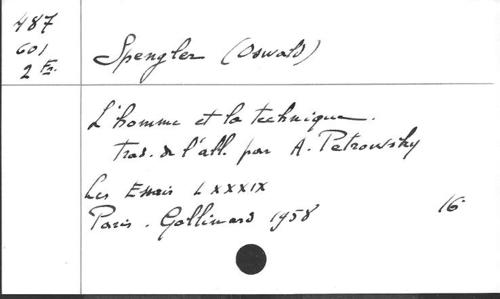 487
601
2 Ex.
Spengler (Oswald)
L'homme et la technique.
Trad. de l'all. par A. Petrowsky
Les Essais LXXXIX
Paris. Gallimard 1958
16°